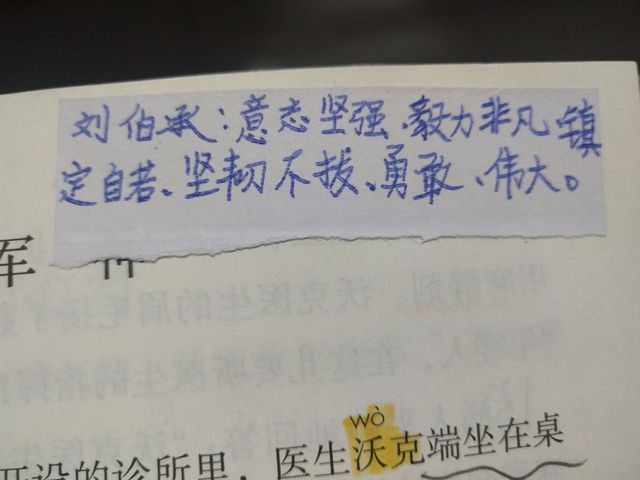 刘伯承：意志坚强、毅力非凡、镇
定自若、坚韧不拔、勇敢、伟大。
军 神
wò
开设的诊所里，医生沃克端坐在桌